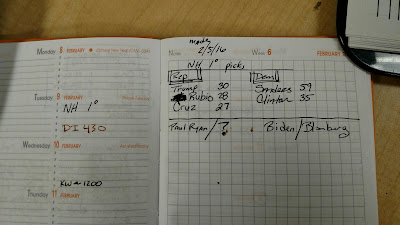 Monday 8 FEBRUARY
Tuesday 9 FEBRUARY
NH 1°
DI 430
Wednesday 10 FEBRUARY
KW ~ 1200
Thursday 11 FEBRUARY
made
2/5/16
Week 6
FEBRUARY
NH 1° picks
Rep Dem
Trump 30 Sanders 59
Rubio 28 Clinton 35
Cruz 27
Paul Ryan/? Biden/Blomburg